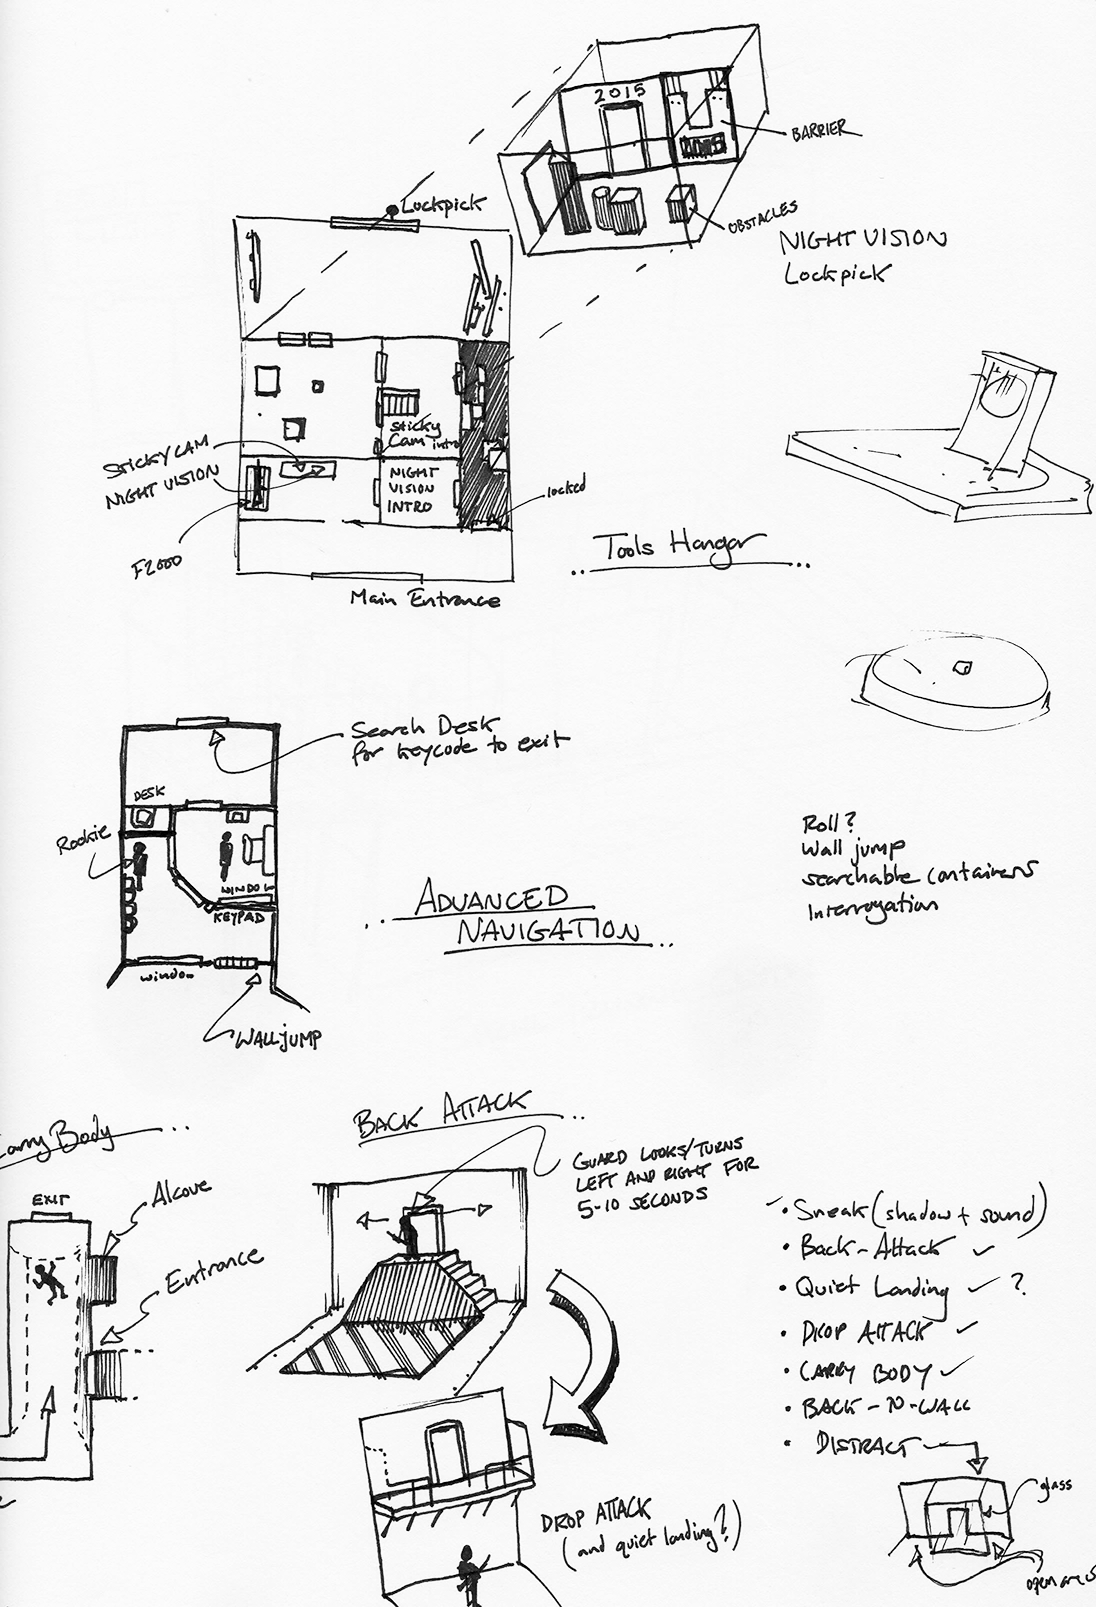 2015
BARRIER
Lockpick
OBSTACLES
NIGHT VISION
Lockpick
Sticky
Cam intro
STICKY CAM
NIGHT VISION
NIGHT
VISION
INTRO
locked
F2000
Tools Hangar
Main Entrance
Search Desk
for keycode to exit
DESK
Rookie
WINDOW
KEYPAD
window
WALL JUMP
ADVANCED
NAVIGATION
Roll?
Wall jump
searchable containers
Interrogation
Carry Body
EXIT
Alcove
Entrance
BACK ATTACK
GUARD LOOKS/TURNS
LEFT AND RIGHT FOR
5-10 SECONDS
DROP ATTACK
(and quiet landing?)
• Sneak (shadow + sound)
• Back-Attack ✓
• Quiet Landing ✓ ?
• DROP ATTACK ✓
• CARRY BODY ✓
• BACK-TO-WALL
• DISTRACT
glass
open areas